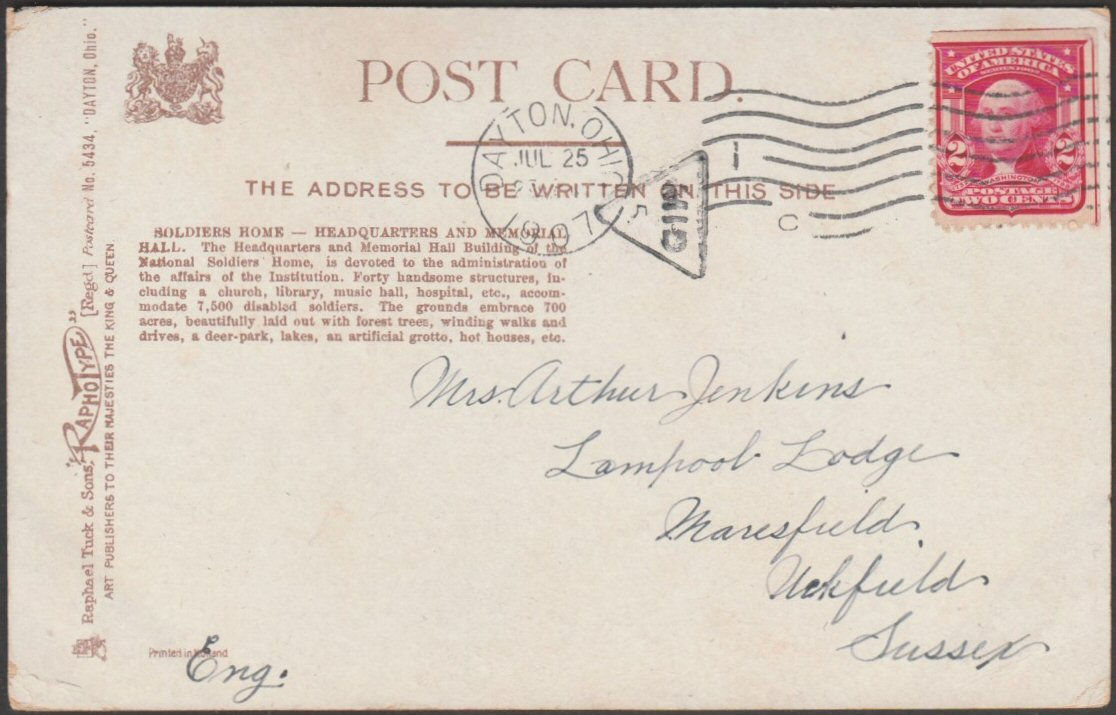 POST CARD.
THE ADDRESS TO BE WRITTEN ON THIS SIDE
DAYTON, OHIO
JUL 25
1907
1
C
UNITED STATES
OF AMERICA
2 2
WASHINGTON
POSTAGE
TWO CENTS
SOLDIERS HOME — HEADQUARTERS AND MEMORIAL
HALL. The Headquarters and Memorial Hall Building of the
National Soldiers' Home, is devoted to the administration of
the affairs of the Institution. Forty handsome structures, in-
cluding a church, library, music hall, hospital, etc., accom-
modate 7,500 disabled soldiers. The grounds embrace 700
acres, beautifully laid out with forest trees, winding walks and
drives, a deer-park, lakes, an artificial grotto, hot houses, etc.
Mrs. Arthur Jenkins
Lampool Lodge
Maresfield
Uckfield
Sussex
Eng.
Printed in Holland
Raphael Tuck & Sons' "RAPHOTYPE" [Regd] Postcard No. 5434, "DAYTON, Ohio."
ART PUBLISHERS TO THEIR MAJESTIES THE KING & QUEEN.